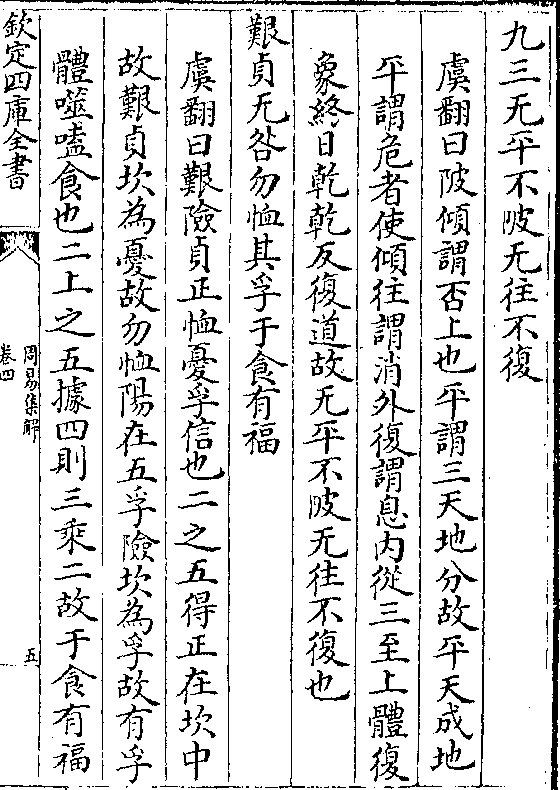 九三无平不陂无往不復
虞翻曰陂傾謂否上也平謂三天地分故平天成地
平謂危者使傾往謂消外復謂息内從三至上體復
象終日乾乾反復道故无平不陂无往不復也
艱貞无咎勿恤其孚于食有福
虞翻曰艱險貞正恤憂孚信也二之五得正在坎中
故艱貞坎為憂故勿恤陽在五孚險坎為孚故有孚
體噬嗑食也二上之五據四則三乘二故于食有福
欽定四庫全書
周易集解
卷四
五